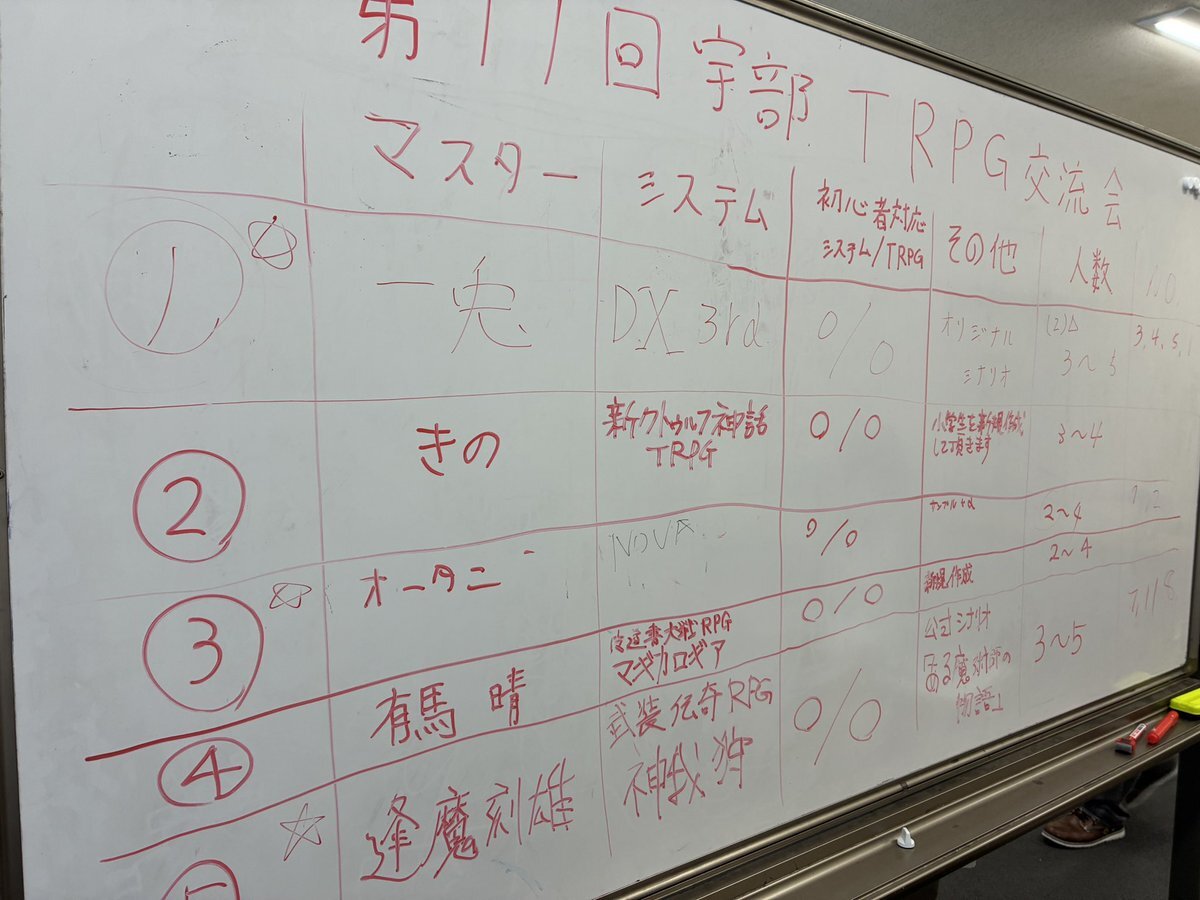 第11回 宇部 TRPG交流会
マスター
システム
初心者対応
システム/TRPG
その他
人数
1
一兎
DX 3rd
○/○
オリジナル
シナリオ
(2)△
3〜5
3.4.5.
2
きの
新クトゥルフ神話
TRPG
○/○
小学生を新規作成
して頂きます
3〜4
3
オータニ
NOVA
○/○
サンプル+α
2〜4
4
有馬 晴
魔道書大戦RPG
マギカロギア
○/○
新規作成
2〜4
5
逢魔刻雄
武装伝奇RPG
神我狩
○/○
公式シナリオ
「ある魔術師の
物語」
3〜5